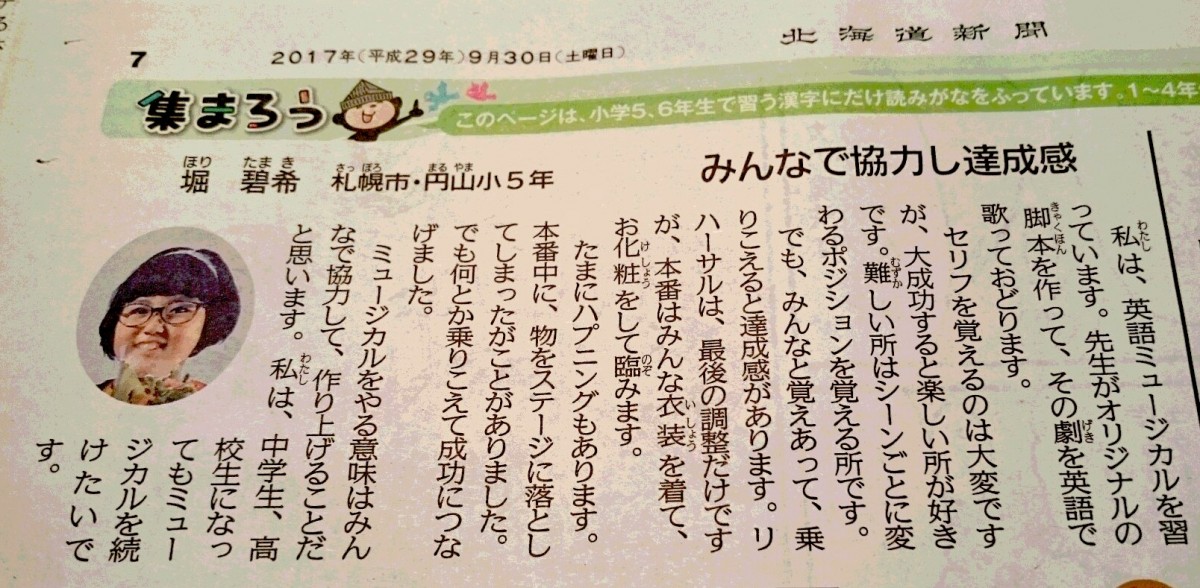 北海道新聞
7
2017年(平成29年)9月30日(土曜日)
集まろう
このページは、小学5、6年生で習う漢字にだけ読みがなをふっています。1〜4年
みんなで協力し達成感
ほり たまき さっぽろ まるやま
堀 碧希 札幌市・円山小5年
私は、英語ミュージカルを習
っています。先生がオリジナルの
脚本を作って、その劇を英語で
歌っておどります。
セリフを覚えるのは大変です
が、大成功すると楽しい所が好き
です。難しい所はシーンごとに変
わるポジションを覚える所です。
でも、みんなと覚えあって、乗
りこえると達成感があります。リ
ハーサルは、最後の調整だけです
が、本番はみんな衣装を着て、
お化粧をして臨みます。
たまにハプニングもあります。
本番中に、物をステージに落とし
てしまったがことがありました。
でも何とか乗りこえて成功につな
げました。
ミュージカルをやる意味はみん
なで協力して、作り上げることだ
と思います。私は、中学生、高
校生になっ
てもミュー
ジカルを続
けたいで
す。